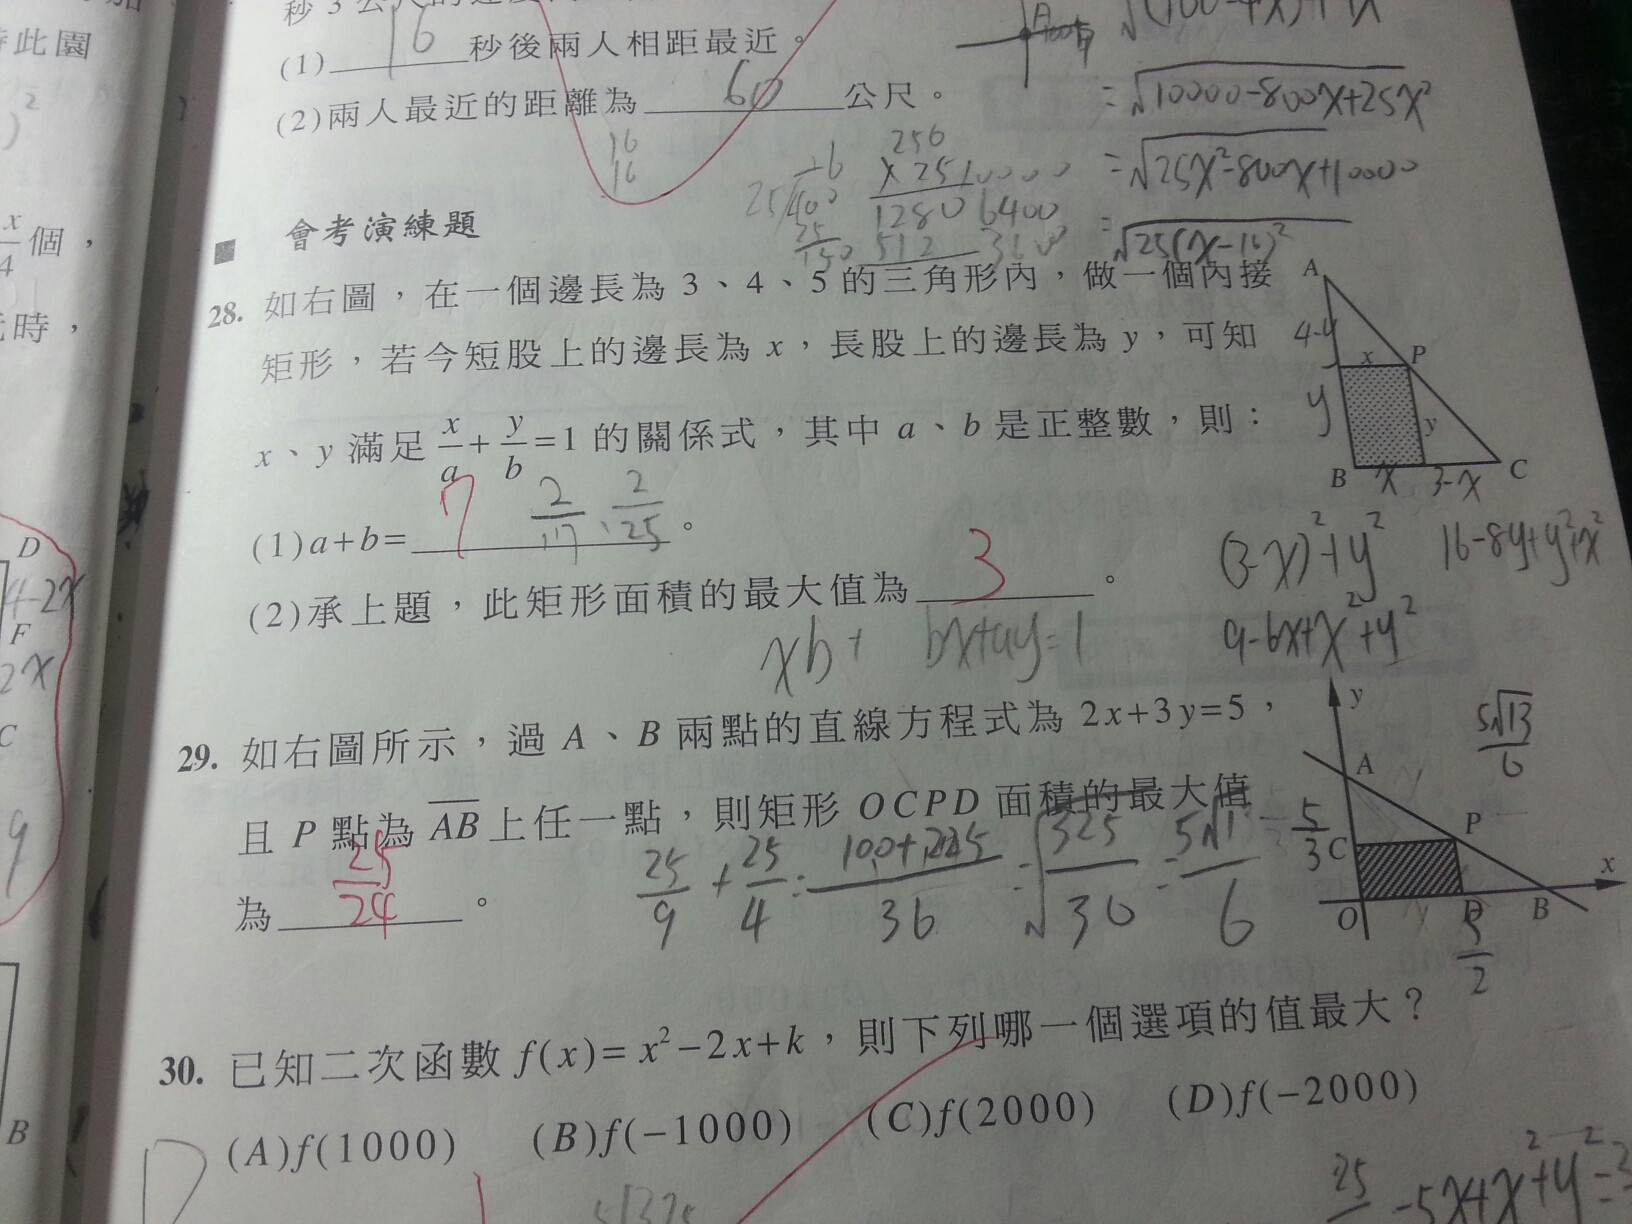 時此園
(1)16秒後兩人相距最近。
(2)兩人最近的距離為60公尺。
=√10000-800x+25x²
=√25x²-800x+10000
=√25(x-16)²
16
16
256
會考演練題
x/4個，
時，
28. 如右圖，在一個邊長為 3、4、5 的三角形內，做一個內接
矩形，若今短股上的邊長為 x，長股上的邊長為 y，可知
x、y 滿足 x/a + y/b = 1 的關係式，其中 a、b 是正整數，則：
(1) a+b= 7 2/17、2/25。
(2)承上題，此矩形面積的最大值為 3。
A
4-y
x P
y
y
B x 3-x C
(3-x)²+y² 16-8y+y²+x²
9-6x+x²+y²
xb+ bx+ay=1
D
4-2x
F
2x
C
9
B
29. 如右圖所示，過 A、B 兩點的直線方程式為 2x+3y=5，
且 P 點為 AB 上任一點，則矩形 OCPD 面積的最大值
為 25/24。
25/9 + 25/4 = 100+225/36 = √325/36 = 5√1 /6
5√13/6
y
A
5/3
P
C
x
O D B
5/2
30. 已知二次函數 f(x)= x²-2x+k，則下列哪一個選項的值最大？
(A)f(1000) (B)f(-1000) (C)f(2000) (D)f(-2000)
D
-5x+x²+y²=